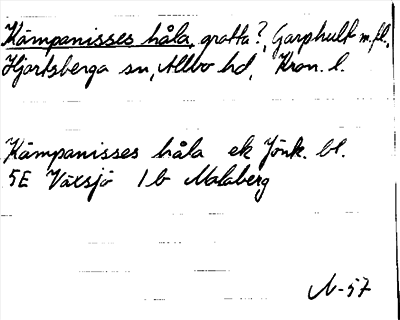 Kämpanisses håla, grotta?, Garphult m.fl.
Hjortsberga sn, Allbo hd, Kron. l.
Kämpanisses håla ek Jönk. bl.
5E Växsjö 1b Malaberg
N-57